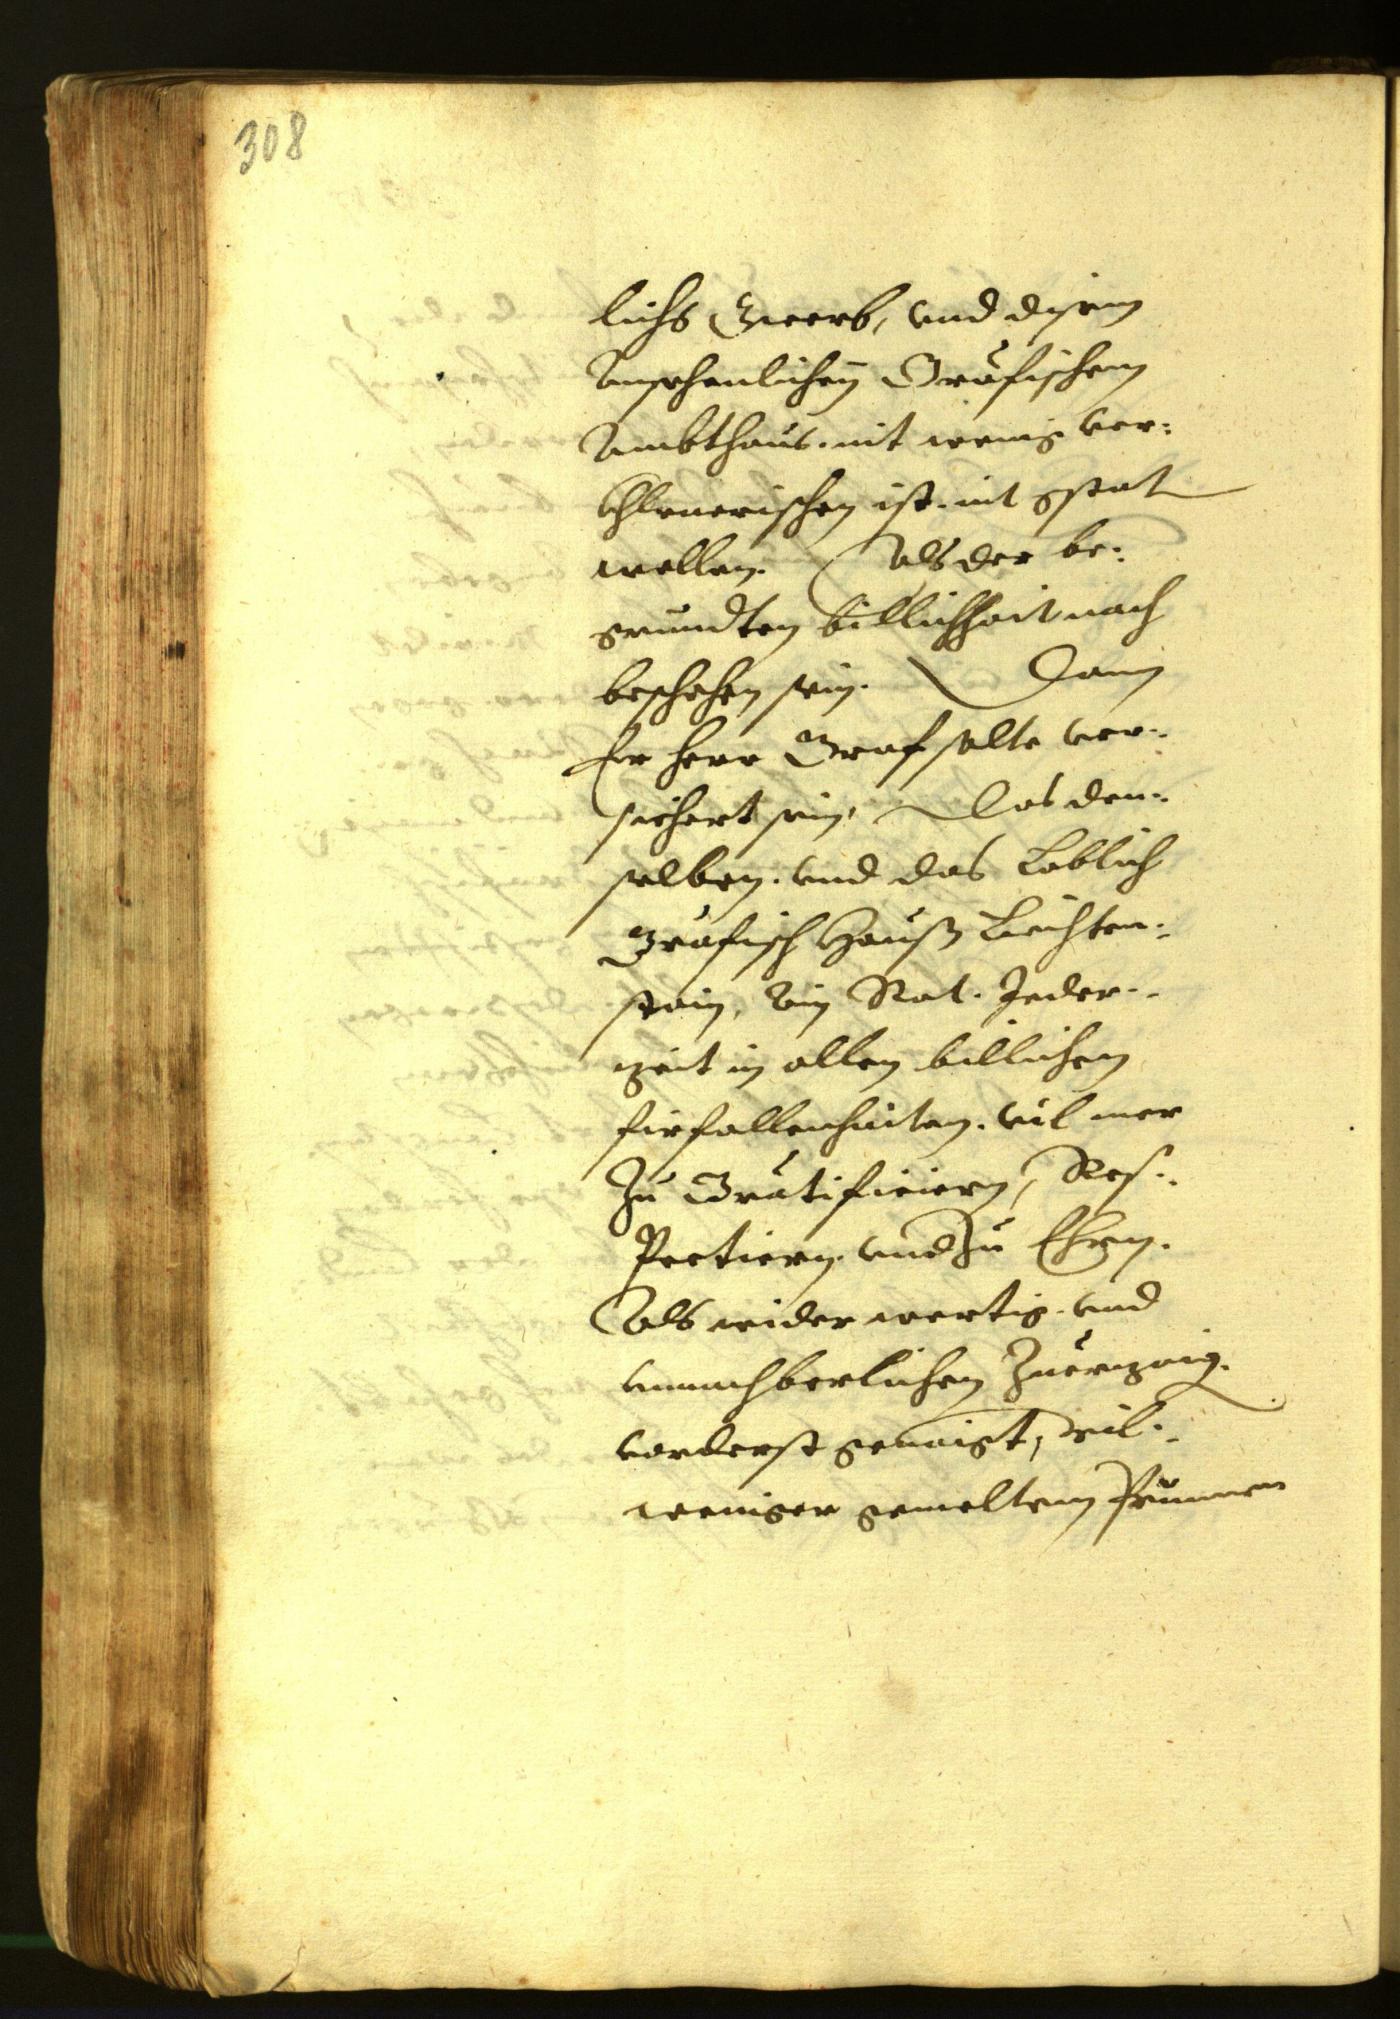 308
lichs Gwerb, vnd disem
Ansehenlichen Gräfischem
Ambthaus. nit wenig ver-
ist. nit gstat
wellen. Als der be-
grundten billichhait nach
beschehen sein. Dann
Er Herr Graf solte ver-
sichert sein, Das den-
selben. vnd das Loblich
Gräfisch Hauß Liechten-
stain, Ain Rat. Jeder-
zeit in allen billichen
fürfallenhaiten. vil mer
Zu Gratificiern, Res-
Pectiern. vnd Zu Ehrn.
Als widerwertig. vnd
vnnachberlichen Zuerzaig.
vorderst genaigt, vil-
weniger gemeltem Prunnen